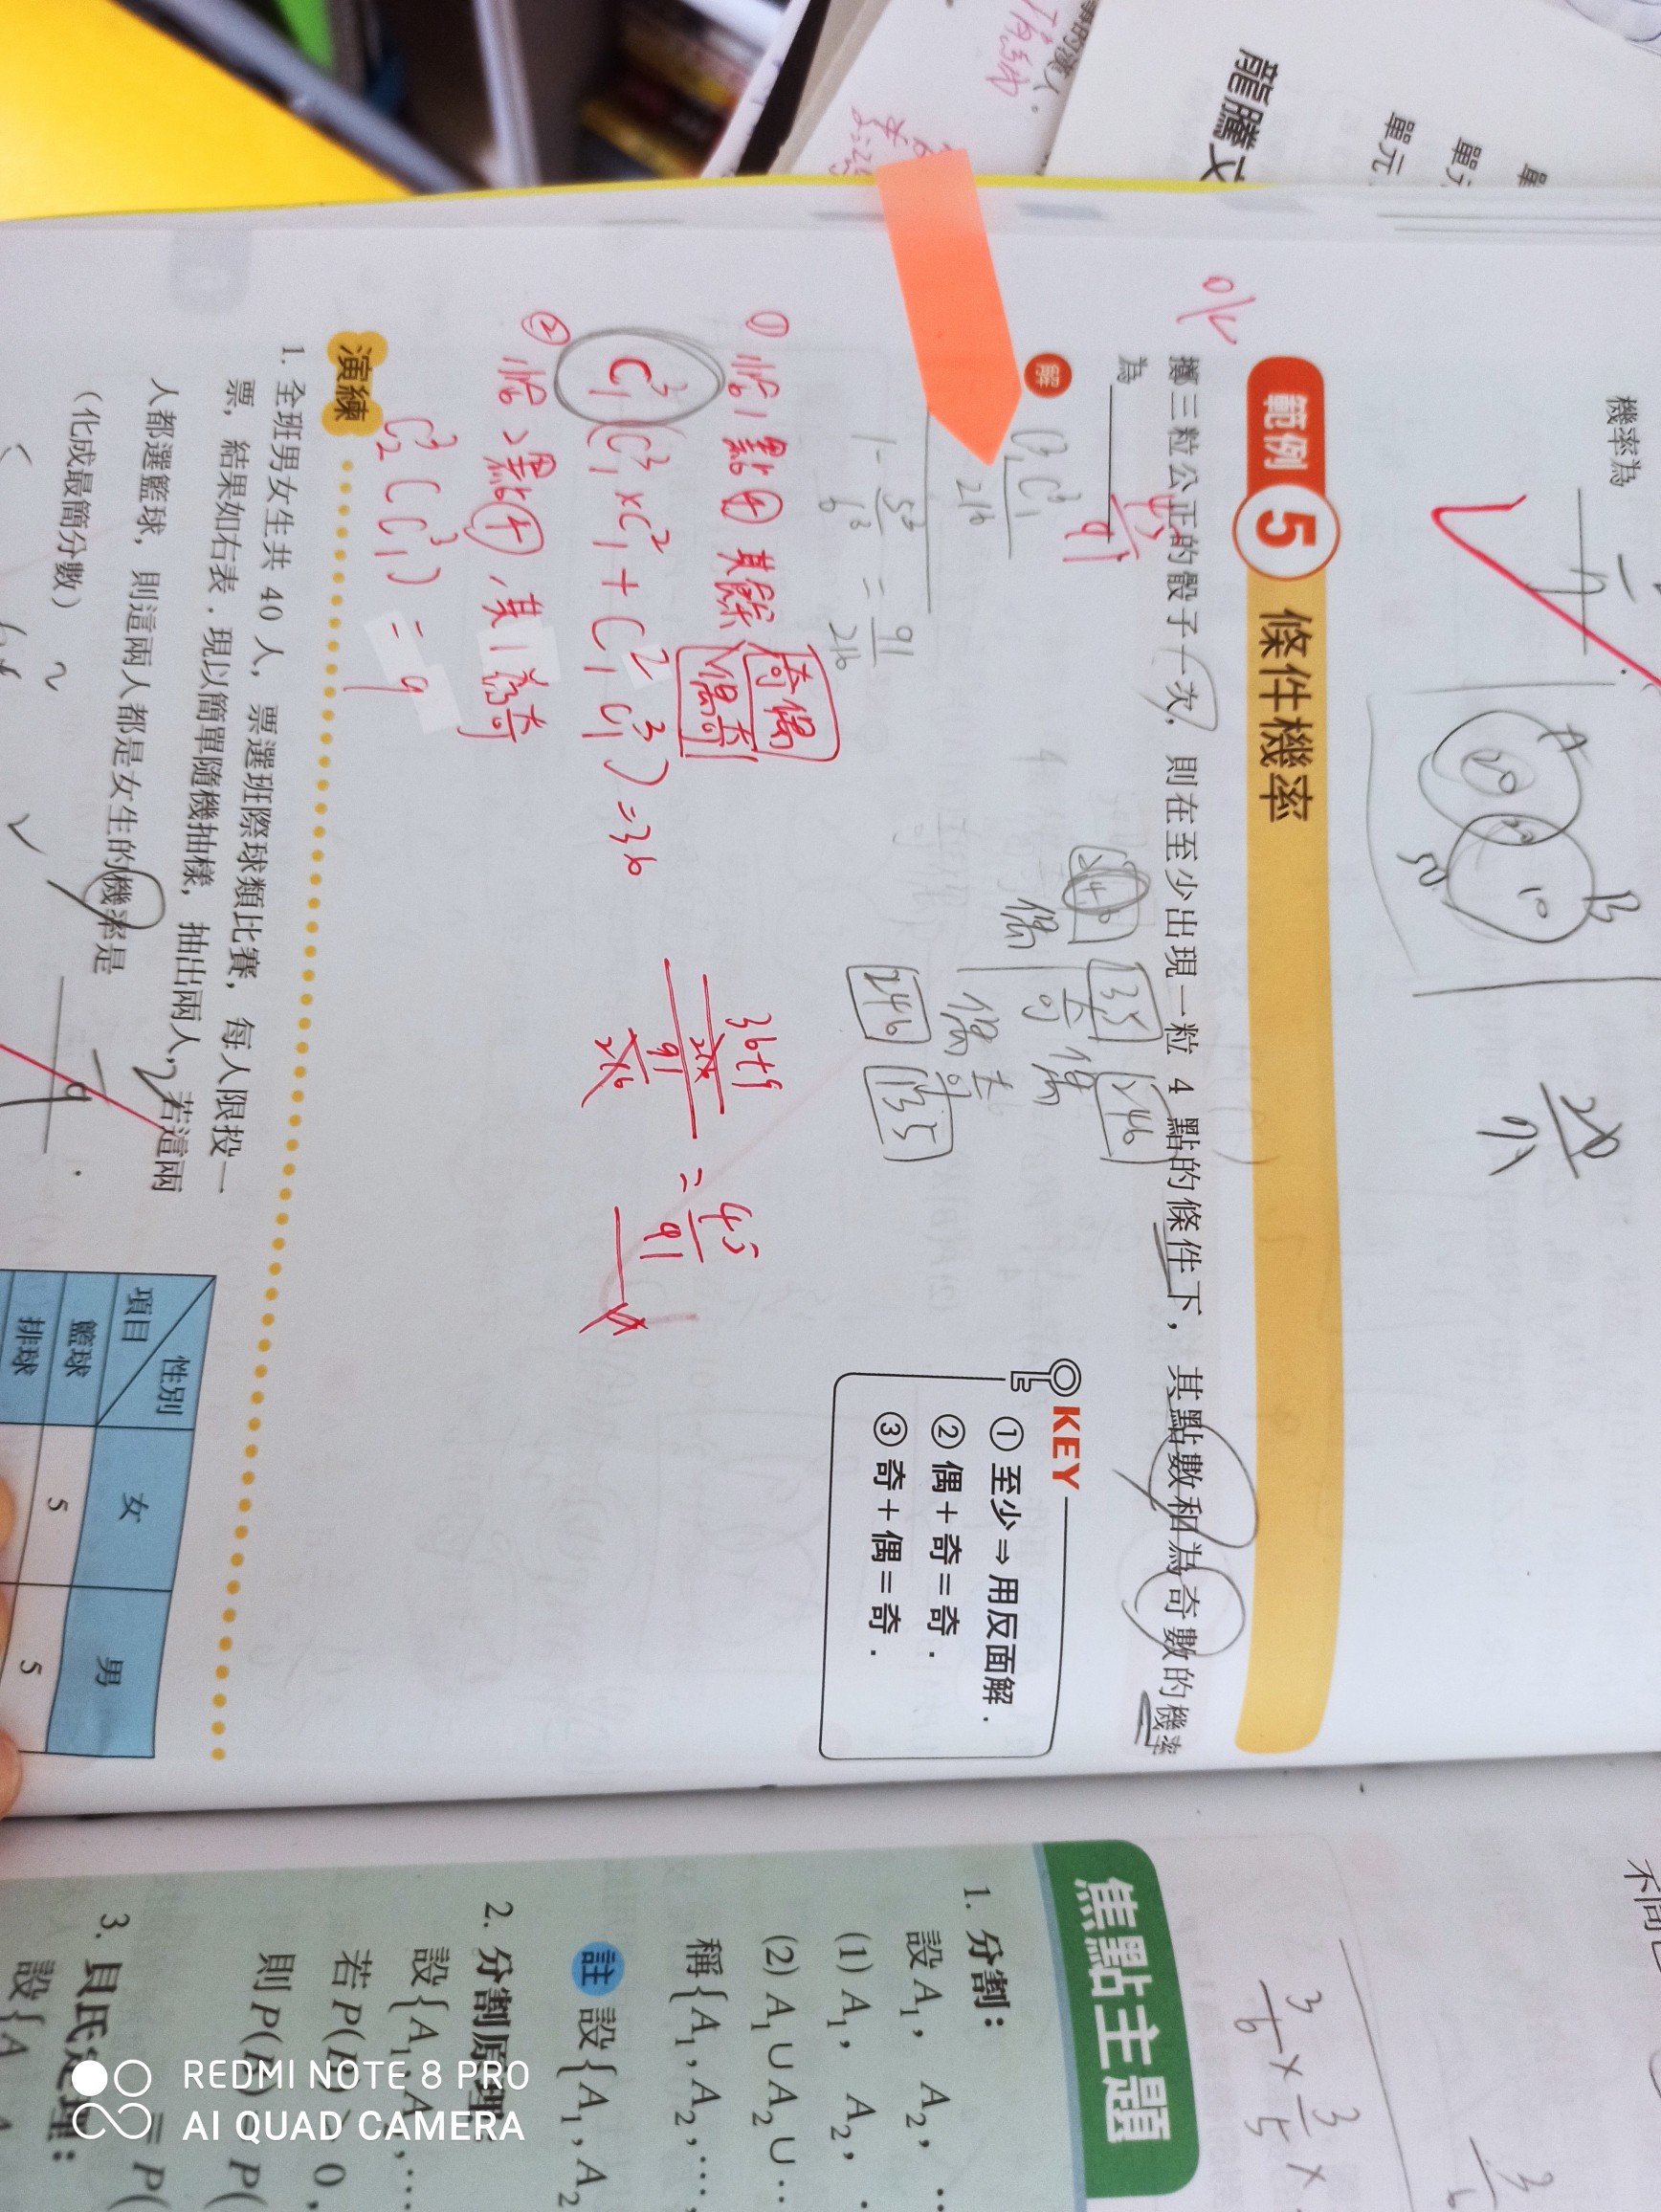 龍騰文
單元
機率為
A
B
20
10
50
範例 5 條件機率
擲三粒公正的骰子一次，則在至少出現一粒 4 點的條件下，其點數和為奇數的機率
為 45/91
解
216
1 - 5³/6³ = 91/216
246
135
246
偶 奇 偶
偶 奇
246
135
KEY
① 至少⇒用反面解．
② 偶＋奇＝奇．
③ 奇＋偶＝奇．
① 恰1點④ 其餘 奇偶
偶奇
C³₁(C³₁×C²₁+C²₁C³₁)=36
② 恰2點④,其1為奇
C³₂(C³₁)=9
36+9
216
91
216
= 45/91
演練
1. 全班男女生共 40 人，票選班際球類比賽，每人限投一
票，結果如右表．現以簡單隨機抽樣，抽出兩人，若這兩
人都選籃球，則這兩人都是女生的機率是
．
（化成最簡分數）
性別
項目
女 男
籃球 5 5
排球
焦點主題
1. 分割：
設 A₁， A₂，…
(1) A₁， A₂，
(2) A₁∪A₂∪…
稱{A₁, A₂, …,
註 設{A₁, A₂
2. 分割原理：
設{A₁, A₂, …
若 P(B)＞0，
則 P(B)＝P(
3. 貝氏定理：
設{A
3/6 × 3/5 ×
REDMI NOTE 8 PRO
AI QUAD CAMERA